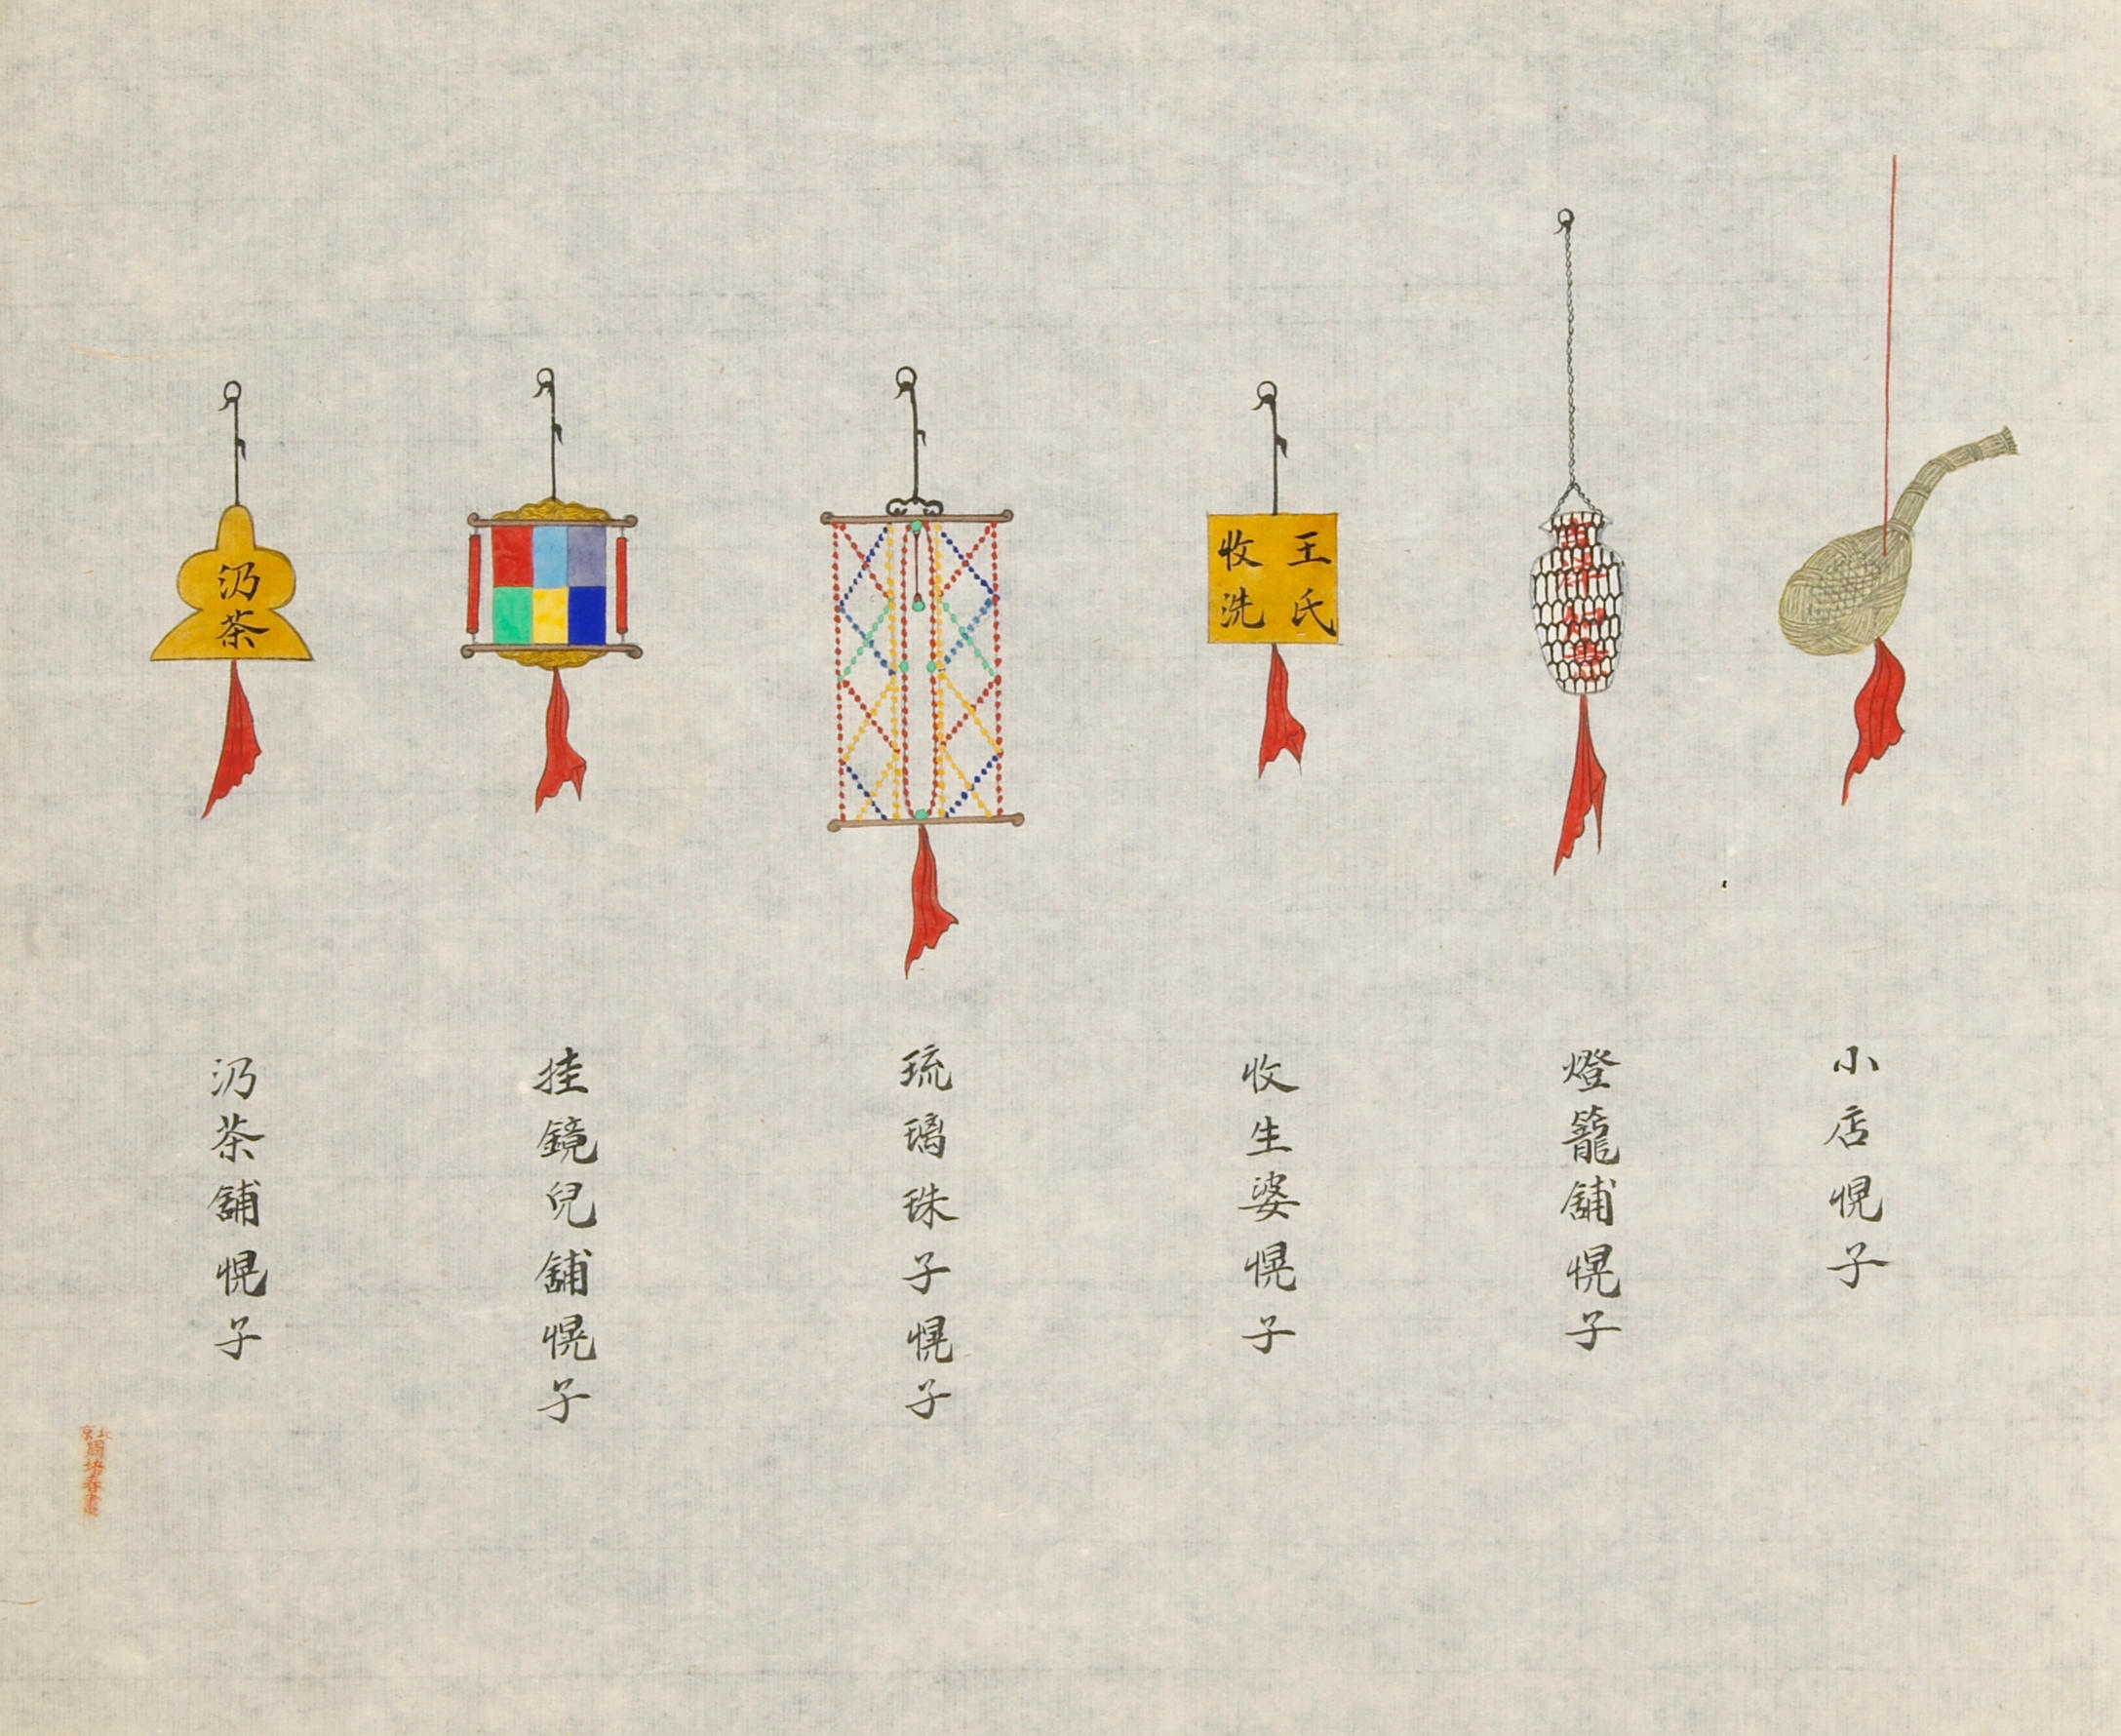 小店幌子
燈籠舖幌子
王氏
收洗
收生婆幌子
琉璃珠子幌子
挂鏡兒舖幌子
汅茶
汅茶舖幌子